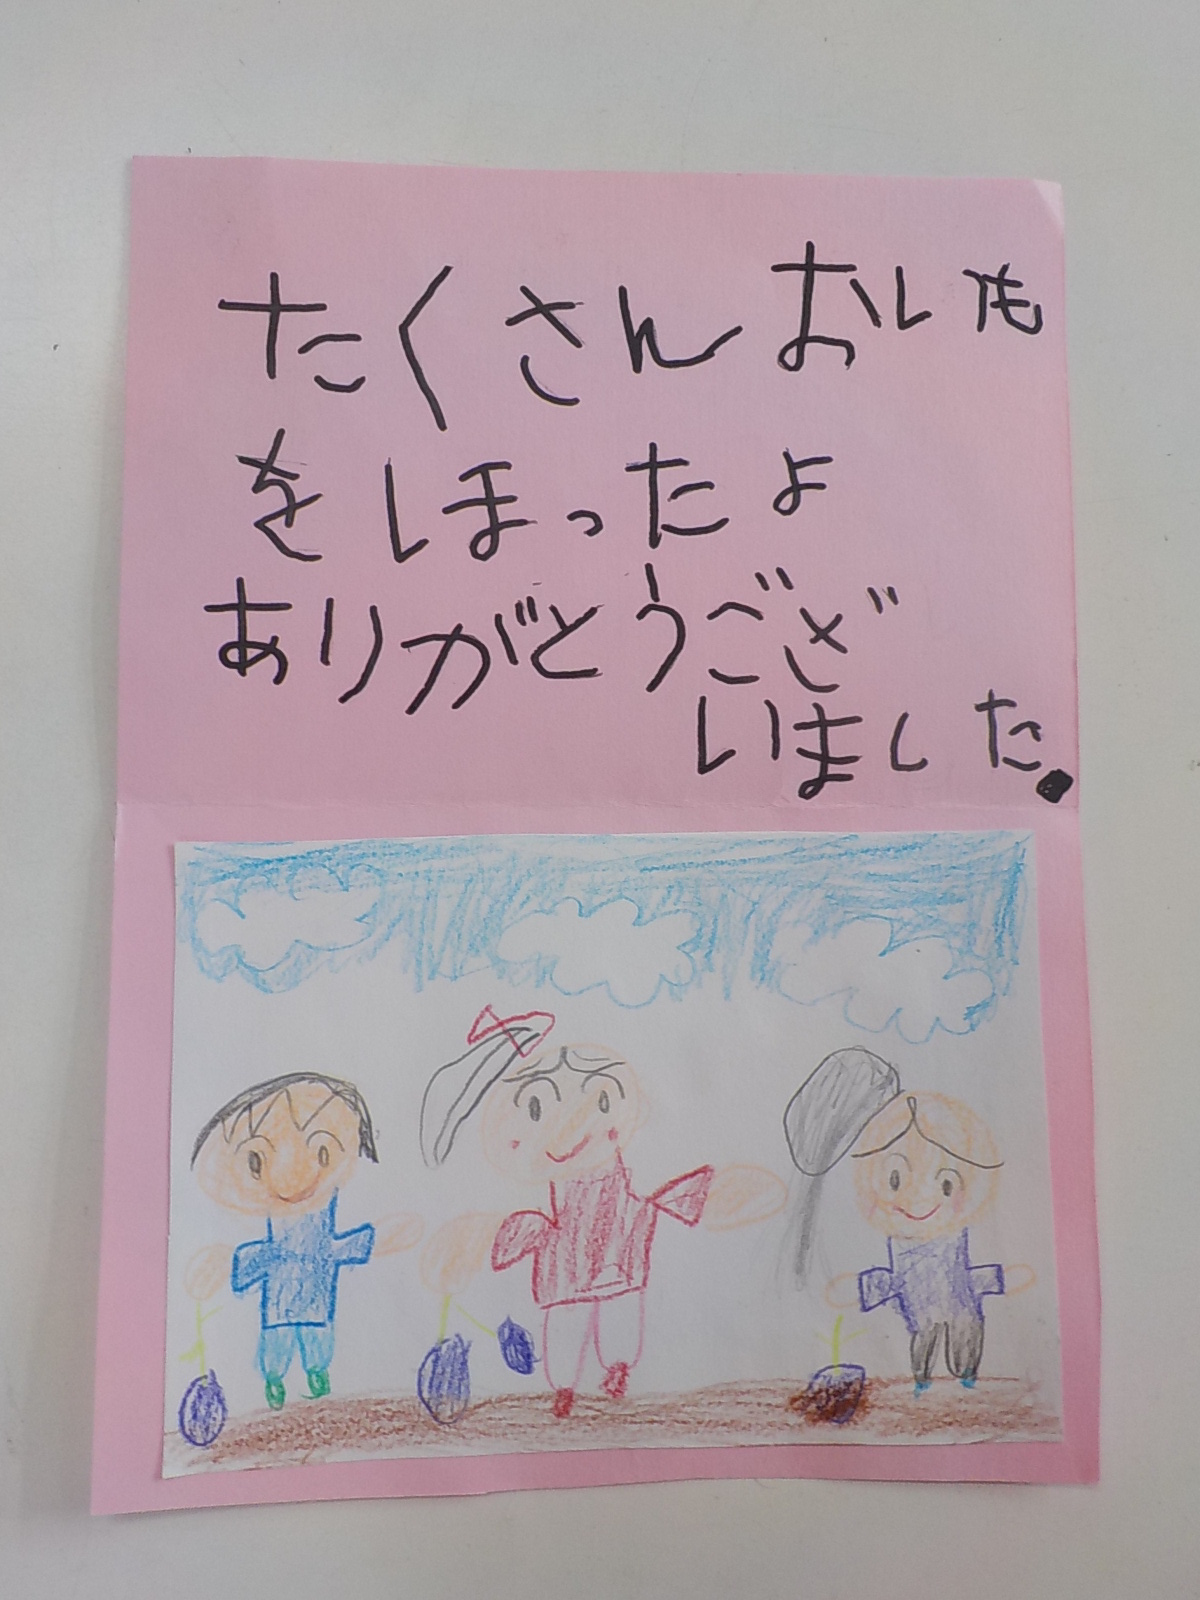 たくさんおいも
をほったよ
ありがとうござ
いました.